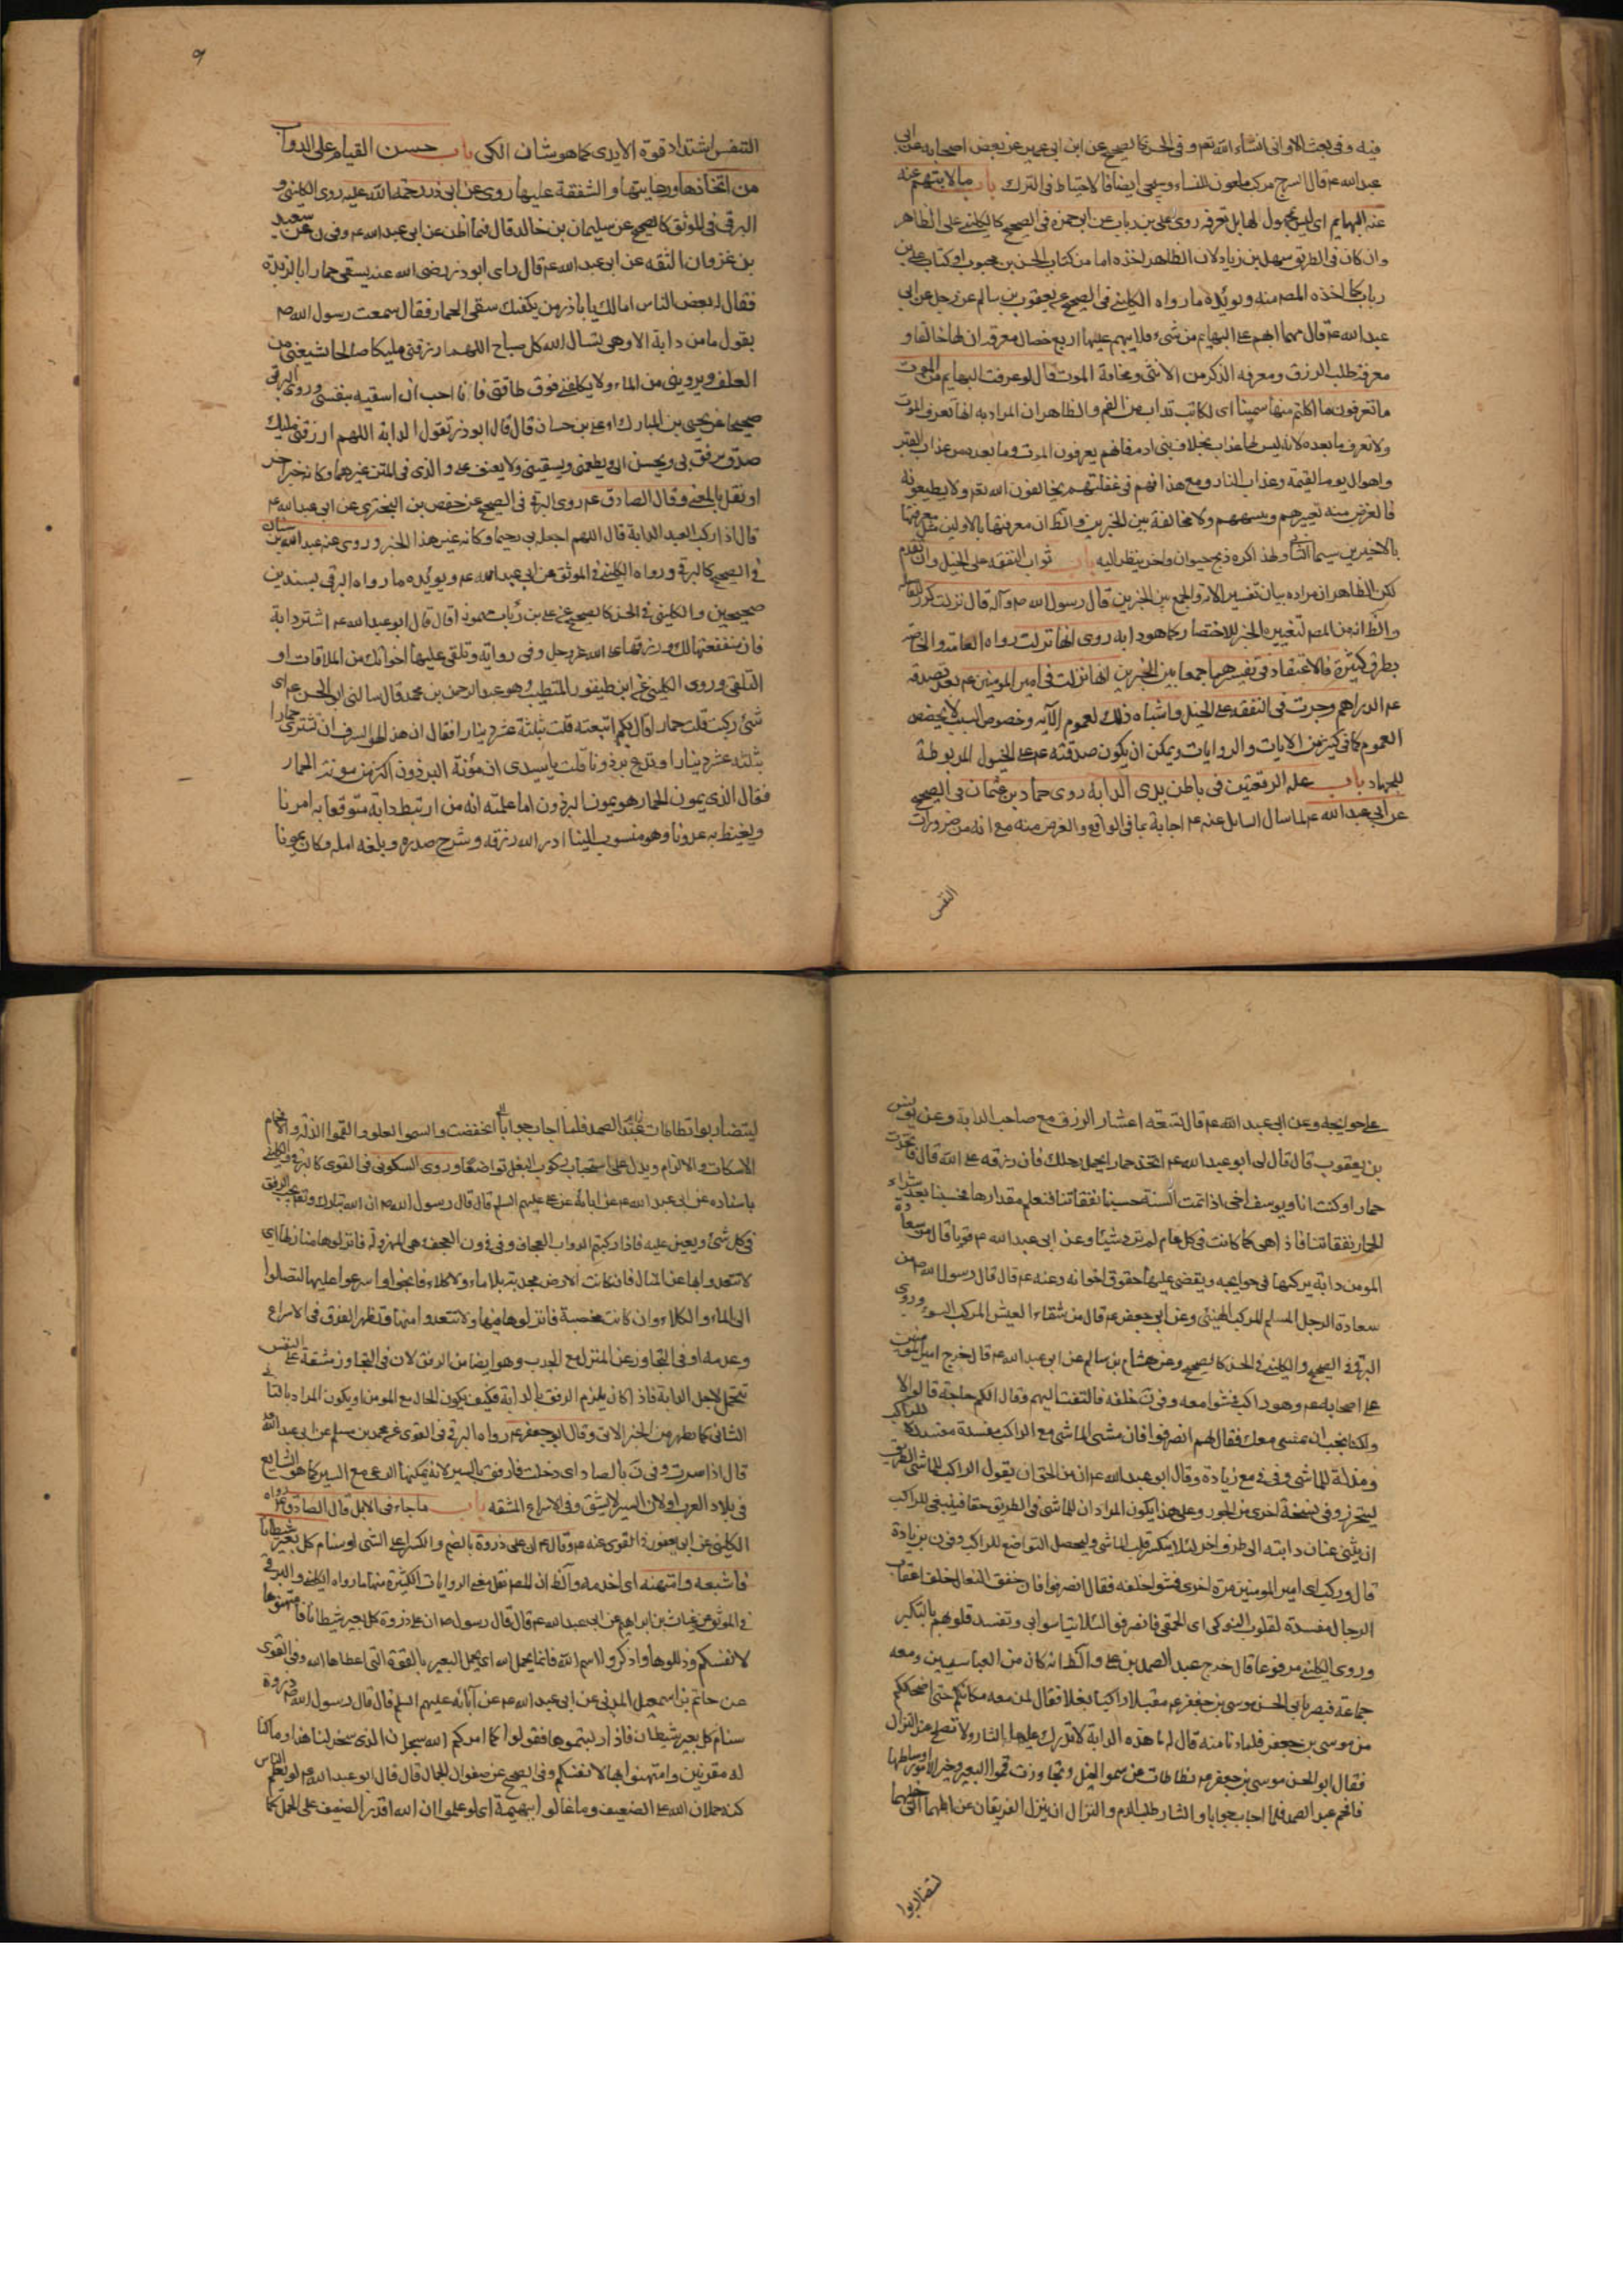 فيه وفى بحث الاوانى انشاء الله تعم وفى الحسن كالصحيح عن ابن ابى عمير عن بعض اصحابه عن ابى
عبد الله عم قال السرج مركب ملعون للنساء وسيجى ايضا فالاحتياط فى الترك باب ما لا يتهم عنه
عنه البهايم اى ليس مجهول لها بل تعرفه روى على بن رباب عن ابى حمزه فى الصحيح كالكلينى على الظاهر
وان كان فى الطريق سهل بن زياد لان الظاهر اخذه اما من كتاب الحسن بن محبوب او كتاب على بن
رباب كما اخذه المصر منه ويؤيده ما رواه الكلينى فى الصحيح عن يعقوب بن سالم عن رجل عن ابى
عبد الله عم قال مهما ابهم على البهايم من شىء فلا يبهم عليها اربع خصال معرفة ان لها خالقا و
معرفة طلب الرزق ومعرفه الذكر من الانثى ومخافة الموت قال لو عرفت البهايم من الموت
ما تعرفون ما اكلتم منها سمينا اى لكانت تذاب من الغم والظاهر ان المراد به انها تعرف الموت
ولا تعرف ما بعده لانه ليس لها عذاب بخلاف بنى ادم فانهم يعرفون الموت وما بعده من عذاب القبر
واهوال يوم القيمة وعذاب النار ومع هذا فهم فى غفلتهم يخالفون الله تعم ولا يطيعونه
فالغرض منه تعييرهم وينبههم ولا مخالفة بين الخبرين والظ ان معرفتها بالاولين مثل معرفتها
بالاخيرين سيما الثانى ولهذا اكره ذبح حيوان واخر ينظر اليه باب ثواب النفقه على الخيل وان تقدم
لكن الظاهر ان مراده بيان تفسير الاية والجمع بين الخبرين قال رسول الله ص وآله قال نزلت
والظ انه من المصر لتغيير الخبر للاختصار كما هو دابه روى انها نزلت رواه العامة والخاصه
بطرق كثيرة فالاعتقاد فى تفسيرها جمعا بين الخبرين انها نزلت فى امير المومنين عم بعد تصدقه
عم الدراهم وجرت فى النفقه على الخيل واشباه ذلك لعموم الآيه وخصوص السبب لا يخصص
العموم كما فى كثير من الايات والروايات ويمكن ان يكون صدقته عم على الخيول المربوطة
للجهاد باب علة الرقعتين فى باطن يدى الدابة روى حماد بن عثمان فى الصحيح
عن ابى عبد الله عم لما سال السايل عنه عم اجابة بما فى الواقع والغرض منه مع انه من ضرورات
النفس
٩
التنفس اشتداد قوة الايدى كما هو شان الكى باب حسن القيام على الدواب
من اتخاذها ورعايتها والشفقة عليها روى عن ابى ذر رحمة الله عليه روى الكلينى و
البرقى فى الموثق كالصحيح عن سليمان بن خالد قال فيما اظن عن ابى عبد الله عم وفى ن عن سعيد
بن غزوان الثقه عن ابى عبد الله عم قال راى ابوذر رضى الله عنه يسقى حمارا بالربذة
فقال له بعض الناس اما لك يا باذر من يكفيك سقى الحمار فقال سمعت رسول الله ص
يقول ما من دابة الا وهى تسال الله كل صباح اللهم ارزقنى مليكا صالحا يشبعنى من
العلف ويروينى من الماء ولا يكلفنى فوق طاقتى فانا احب ان اسقيه بنفسى وروى البرقى
صحيحا عن يحيى بن المبارك او على بن حسان قال قال ابوذر تقول الدابة اللهم ارزقنى مليك
صدق يرفق بى ويحسن الى ويطعمنى ويسقينى ولا يعنف على والذى فى المتن غيرهما وكانه خبر اخر
او نقل بالمعنى وقال الصادق عم روى البرقى فى الصحيح عن حفص بن البخترى عن ابى عبد الله عم
قال اذا ركب العبد الدابة قال اللهم اجعله بى رحيما وكانه غير هذا الخبر وروى عنه عبد الله بن سنان
فى الصحيح كالبرقى ورواه الكلينى فى الموثق عن ابى عبد الله عم ويؤيده ما رواه البرقى بسندين
صحيحين والكلينى فى الحسن كالصحيح عن على بن رئاب قال قال ابو عبد الله عم اشتر دابة
فان منفعتها لك ورزقها على الله عز وجل وفى رواية وتلقى عليها اخوانك من الملاقات او
التلقى وروى الكلينى عن ابن طيفور المتطبب وهو عبد الرحمن بن محمد قال سالنى ابو الحسن عم اى
شئ ركبت قلت حمارا قال بكم ابتعته قلت بثلثة عشر دينارا فقال ان هذا لهو السرف ان تشترى حمارا
بثلثه عشر دينارا وتدع برذونا قلت يا سيدى ان مؤنة البرذون اكثر من مونة الحمار
فقال الذى يمون الحمار هو يمون البرذون اما علمت انه من ارتبط دابة متوقعا به امرنا
ويغيظ به عدونا وهو منسوب الينا ادر الله رزقه وشرح صدره وبلغه امله وكان عونا
على حوايجه وعن ابى عبد الله عم قال تسعه اعشار الرزق مع صاحب الدابة وعن يونس
بن يعقوب قال قال لى ابو عبد الله عم اتخذ حمارا يحمل رحلك فان رزقه على الله قال فاتخذت
حمارا وكنت انا ويوسف اخى اذا تمت السنة حسبنا نفقاتنا فنعلم مقدارها فحسبنا بعد شراء
الحمار نفقاتنا فاذا هى كما كانت فى كل عام لم تزد شيئا وعن ابى عبد الله عم قال من سعادة
المومن دابة يركبها فى حوايجه ويقضى عليها حقوق اخوانه وعنه عم قال قال رسول الله ص من
سعادة الرجل المسلم المركب الهنيئى وعن ابى جعفر عم قال من شقاء العيش المركب السوء وروى
البرقى فى الصحيح والكلينى فى الحسن كالصحيح وعن هشام بن سالم عن ابى عبد الله عم قال خرج امير المومنين
على اصحابه عم وهو راكب فمشوا معه وفى ن خلفه فالتفت اليهم فقال الكم حاجة قالوا لا
ولكنا نحب ان نمشى معك فقال لهم انصرفوا فان مشى الماشى مع الراكب مفسدة للراكب
ومذلة للماشى وفى مع زيادة وقال ابو عبد الله عم ان من الحق ان يقول الراكب للماشى الطريق
ليتحرز وفى نسخة اخرى من الجور وعلى هذا يكون المراد ان للماشى فى الطريق حقا فينبغى للراكب
ان يثنى عنان دابته الى طرف اخر لئلا ينكسر قلب الماشى وليحصل التواضع للراكب وفى ن بزيادة
قال وركب اى امير المومنين مرة اخرى فمشوا خلفه فقال انصرفوا فان خفق النعال خلف اعقاب
الرجال مفسدة لقلوب النوكى اى الحمقى فانصرفوا لئلا يتاسوا بى وتفسد قلوبهم بالتكبر
وروى الكلينى مرفوعا قال خرج عبد الصمد بن على والظ انه كان من العباسيين ومعه
جماعة فبصر بابى الحسن موسى بن جعفر عم مقبلا راكبا بغلا فقال لمن معه مكانكم حتى اضحككم
من موسى بن جعفر فلما دنا منه قال له ما هذه الدابة لا تدرك عليها الثار ولا تصلح عند النزال
فقال ابو الحسن موسى بن جعفر عم تطاطات عن سمو الخيل وتجاوزت قمو العير وخير الامور اوسطها
فافحم عبد الصمد فما احاب جوابا والثار طلب الدم والنزال ان ينزل الفريقان عن ابلهما الى خيلهما
ليتضاربوا
ليتضاربوا تطاطات عند الصمد فلما اجاب جوابا اى انخفضت والسمو العلو والقموا الذلة والافحام
الاسكات والالزام ويدل على استحباب ركوب البغل تواضعا وروى السكونى فى القوى كالبرقى والكلينى
باسناده عن ابى عبد الله عم عن ابائه عن على عليهم السلم قال قال رسول الله ص ان الله تبارك وتعم يحب الرفق
فى كل شئ ويعين عليه فاذا ركبتم الدواب العجاف وفى ون العجف هى المهزولة فانزلوها منازلها اى
لا تتعدوا بها عن المنازل فان كانت الارض مجدبة بلا ماء ولا كلاء فانجوا واسرعوا عليها لتصلوا
الى الماء والكلاء وان كانت مخصبة فانزلوها فيها ولا تتعدوا منها وتظهر الفرق فى الاسراع
وعدمه او فى التجاوز عن المنزل مع الجدب وهو ايضا من الرفق لان فى التجاوز مشقة على النفس
تتحمل لاجل الدابة فاذا كان يلزم الرفق بالدابة فكيف يكون الحال مع المومن او يكون المراد بالتا
الثانى كما يظهر من الخبر الاتى وقال ابو جعفر عم رواه البرقى فى القوى عن محمد بن مسلم عن ابى عبد الله
قال اذا سرت وفى ن بالصاد اى دخلت فارفق بالسير لانه يمكنها الرعى مع السير كما هو الشايع
فى بلاد العرب او لان السير لا يشق وفى الاسراع المشقه باب ما جاء فى الابل قال الصادق عم رواه
الكلينى عن ابى يعفور فى القوى عنه عم وقال عم ان على ذروة بالضم والكسر اعلى الشئ او سنام كل بعير شيطانا
فاشبعه وامتهنه اى اخدمه والظ ان المصر نقل معنى الروايات الكثيرة منها ما رواه الكلينى والبرقى
فى الموثق عن غياث بن ابراهيم عن ابى عبد الله عم قال قال رسول ص ان على ذروة كل بعير شيطانا فامتهنوها
لانفسكم وذللوها واذكروا اسم الله فانما يحمل الله اى يحمل البعير بالقوة التى اعطاها الله وفى القوى
عن حاتم بن اسمعيل المدنى عن ابى عبد الله عم عن آبائه عليهم السلم قال قال رسول الله ص على ذروة
سنام كل بعير شيطان فاذا ركبتموها فقولوا كما امركم الله سبحان الذى سخر لنا هذا وما كنا
له مقرنين وامتهنوا بها لانفسكم وفى الصحيح عن صفوان الجمال قال قال ابو عبد الله عم لو يعلم الناس
كنه حملان الله على الضعيف وما غالوا ببهيمة اى لو علموا ان الله اقدر الضعيف على الحمل كما